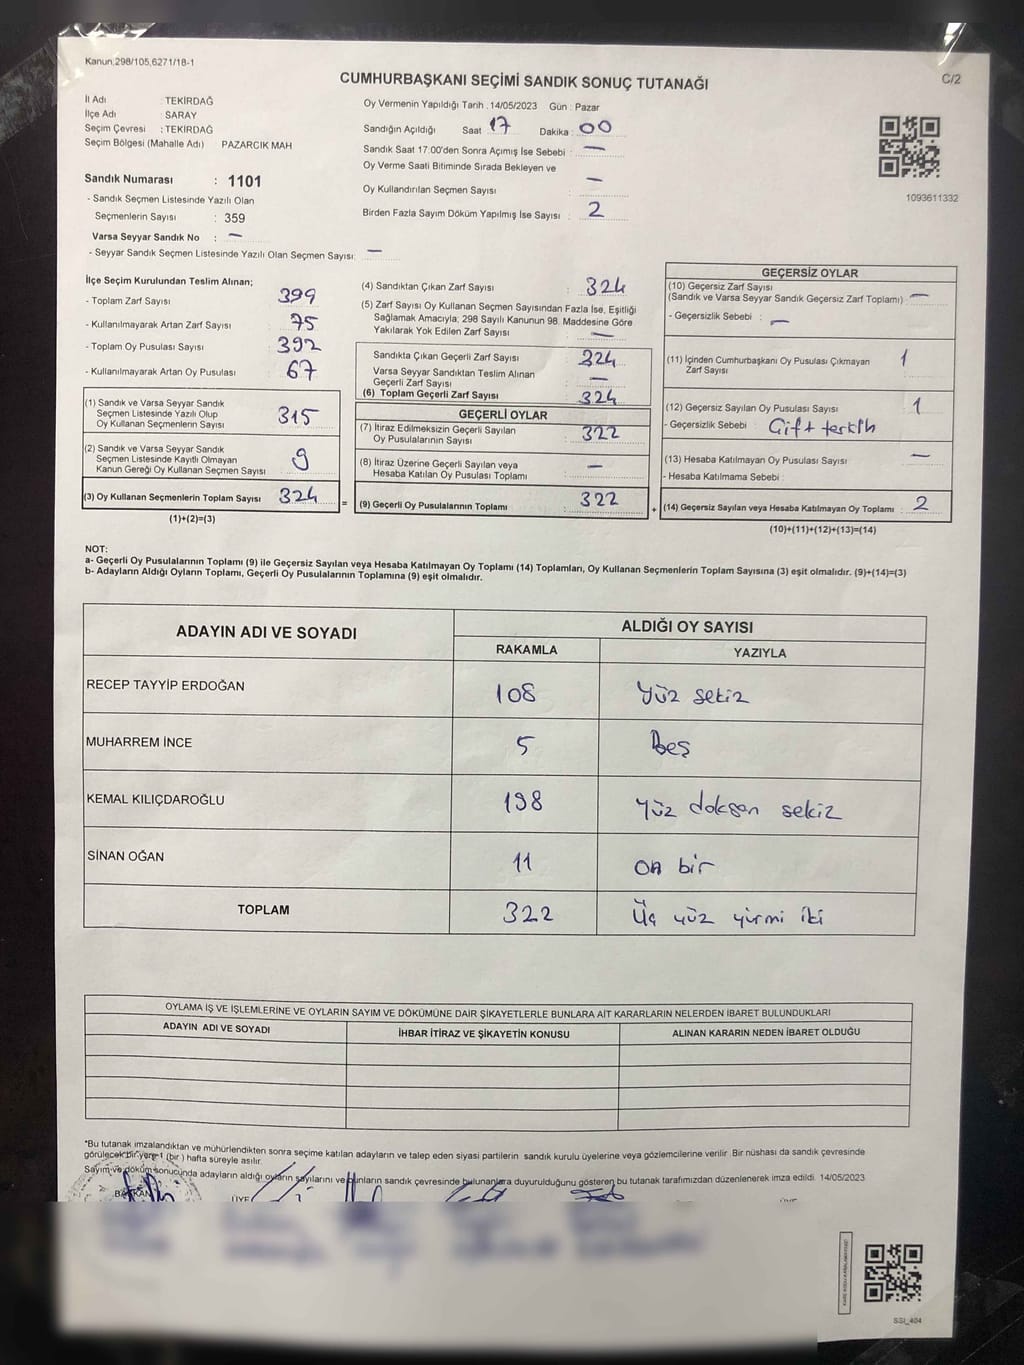 Kanun;298/105,6271/18-1
CUMHURBAŞKANI SEÇİMİ SANDIK SONUÇ TUTANAĞI
C/2
İl Adı : TEKİRDAĞ
İlçe Adı : SARAY
Seçim Çevresi : TEKİRDAĞ
Seçim Bölgesi (Mahalle Adı) PAZARCIK MAH
Sandık Numarası : 1101
- Sandık Seçmen Listesinde Yazılı Olan
Seçmenlerin Sayısı : 359
Varsa Seyyar Sandık No : —
- Seyyar Sandık Seçmen Listesinde Yazılı Olan Seçmen Sayısı: —
Oy Vermenin Yapıldığı Tarih : 14/05/2023 Gün : Pazar
Sandığın Açıldığı Saat 17 Dakika : 00
Sandık Saat 17:00'den Sonra Açımış İse Sebebi : —
Oy Verme Saati Bitiminde Sırada Bekleyen ve
Oy Kullandırılan Seçmen Sayısı : —
Birden Fazla Sayım Döküm Yapılmış İse Sayısı : 2
1093611332
İlçe Seçim Kurulundan Teslim Alınan;
- Toplam Zarf Sayısı : 399
- Kullanılmayarak Artan Zarf Sayısı : 75
- Toplam Oy Pusulası Sayısı : 392
- Kullanılmayarak Artan Oy Pusulası : 67
(1) Sandık ve Varsa Seyyar Sandık
Seçmen Listesinde Yazılı Olup
Oy Kullanan Seçmenlerin Sayısı : 315
(2) Sandık ve Varsa Seyyar Sandık
Seçmen Listesinde Kayıtlı Olmayan
Kanun Gereği Oy Kullanan Seçmen Sayısı : 9
(3) Oy Kullanan Seçmenlerin Toplam Sayısı : 324
(1)+(2)=(3)
=
(4) Sandıktan Çıkan Zarf Sayısı : 324
(5) Zarf Sayısı Oy Kullanan Seçmen Sayısından Fazla İse, Eşitliği
Sağlamak Amacıyla; 298 Sayılı Kanunun 98. Maddesine Göre
Yakılarak Yok Edilen Zarf Sayısı : —
Sandıkta Çıkan Geçerli Zarf Sayısı : 324
Varsa Seyyar Sandıktan Teslim Alınan
Geçerli Zarf Sayısı : —
(6) Toplam Geçerli Zarf Sayısı : 324
GEÇERLİ OYLAR
(7) İtiraz Edilmeksizin Geçerli Sayılan
Oy Pusulalarının Sayısı : 322
(8) İtiraz Üzerine Geçerli Sayılan veya
Hesaba Katılan Oy Pusulası Toplamı : —
(9) Geçerli Oy Pusulalarının Toplamı : 322
+
GEÇERSİZ OYLAR
(10) Geçersiz Zarf Sayısı
(Sandık ve Varsa Seyyar Sandık Geçersiz Zarf Toplamı) : —
- Geçersizlik Sebebi : —
(11) İçinden Cumhurbaşkanı Oy Pusulası Çıkmayan
Zarf Sayısı : 1
(12) Geçersiz Sayılan Oy Pusulası Sayısı : 1
- Geçersizlik Sebebi : Çift tercih
(13) Hesaba Katılmayan Oy Pusulası Sayısı : —
- Hesaba Katılmama Sebebi :
(14) Geçersiz Sayılan veya Hesaba Katılmayan Oy Toplamı : 2
(10)+(11)+(12)+(13)=(14)
NOT:
a- Geçerli Oy Pusulalarının Toplamı (9) ile Geçersiz Sayılan veya Hesaba Katılmayan Oy Toplamı (14) Toplamları, Oy Kullanan Seçmenlerin Toplam Sayısına (3) eşit olmalıdır. (9)+(14)=(3)
b- Adayların Aldığı Oyların Toplamı, Geçerli Oy Pusulalarının Toplamına (9) eşit olmalıdır.
ADAYIN ADI VE SOYADI ALDIĞI OY SAYISI
RAKAMLA YAZIYLA
RECEP TAYYİP ERDOĞAN 108 yüz sekiz
MUHARREM İNCE 5 Beş
KEMAL KILIÇDAROĞLU 198 yüz doksan sekiz
SİNAN OĞAN 11 on bir
TOPLAM 322 Üç yüz yirmi iki
OYLAMA İŞ VE İŞLEMLERİNE VE OYLARIN SAYIM VE DÖKÜMÜNE DAİR ŞİKAYETLERLE BUNLARA AİT KARARLARIN NELERDEN İBARET BULUNDUKLARI
ADAYIN ADI VE SOYADI İHBAR İTİRAZ VE ŞİKAYETİN KONUSU ALINAN KARARIN NEDEN İBARET OLDUĞU
*Bu tutanak imzalandıktan ve mühürlendikten sonra seçime katılan adayların ve talep eden siyasi partilerin sandık kurulu üyelerine veya gözlemcilerine verilir. Bir nüshası da sandık çevresinde
görülecek bir yere 1 (bir ) hafta süreyle asılır.
Sayım ve döküm sonucunda adayların aldığı oyların sayılarını ve bunların sandık çevresinde bulunanlara duyurulduğunu gösteren bu tutanak tarafımızdan düzenlenerek imza edildi. 14/05/2023
BAŞKAN ÜYE ÜYE
SSI_404